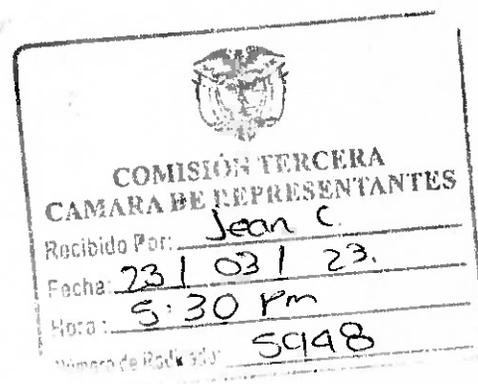 COMISIÓN TERCERA
CAMARA DE REPRESENTANTES
Recibido Por: Jean C.
Fecha: 23 | 03 | 23.
Hora: 5:30 Pm
Número de Radicado: 5948